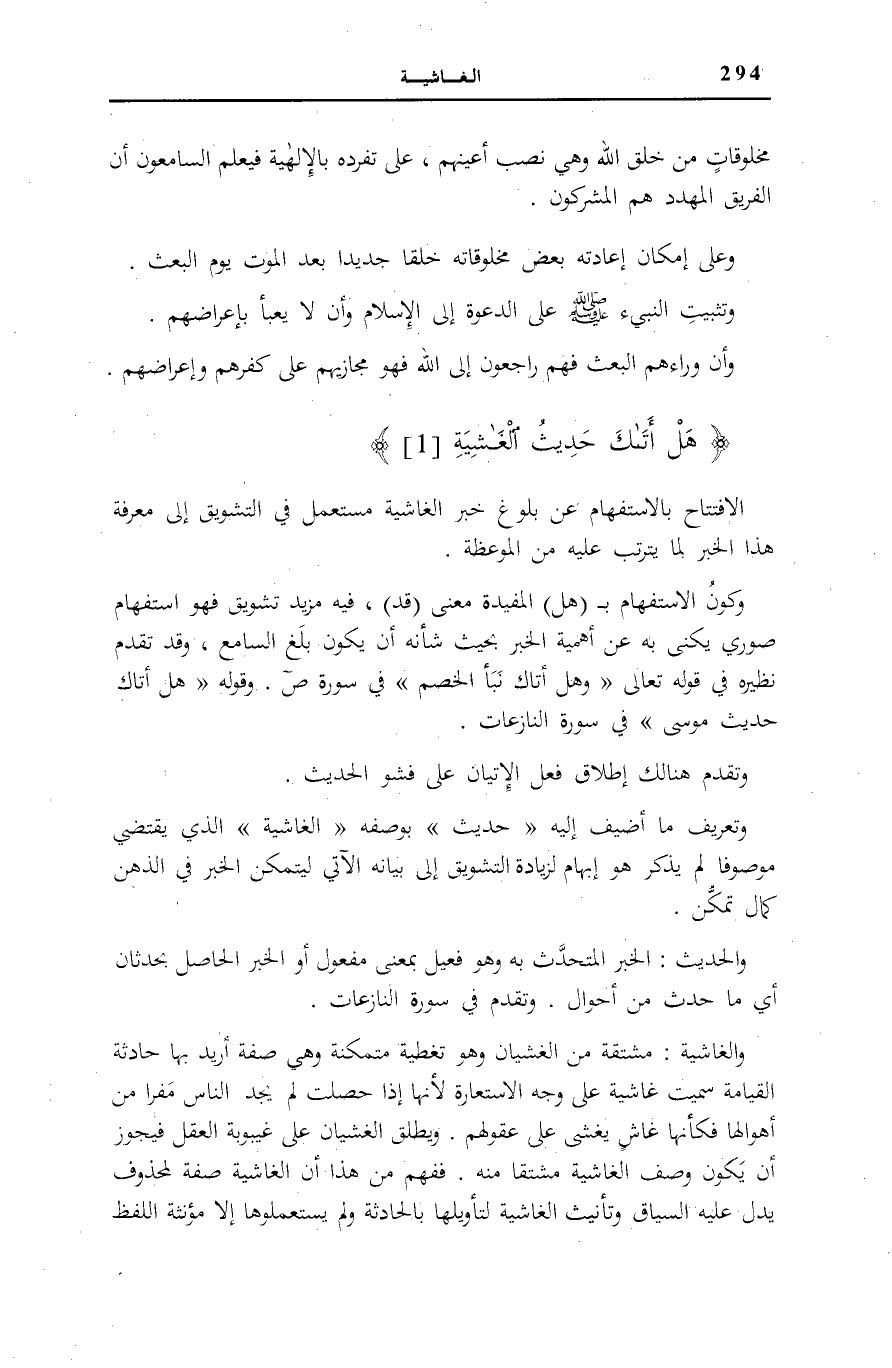 294 الغـــاشيـــة
مخلوقاتٍ من خلق الله وهي نصب أعينهم ، على تفرده بالإِلهٰية فيعلم السامعون أن
الفريق المهدد هم المشركون .
وعلى إمكان إعادته بعض مخلوقاته خلقا جديدا بعد الموت يوم البعث .
وتثبيتِ النبيء ﷺ على الدعوة إلى الإِسلام وأن لا يعبأ بإعراضهم .
وأن وراءهم البعث فهم راجعون إلى الله فهو مجازيهم على كفرهم وإعراضهم .
﴿ هَلْ أَتَىٰكَ حَدِيثُ ٱلْغَـٰشِيَةِ [1] ﴾
الافتتاح بالاستفهام عن بلوغ خبر الغاشية مستعمل في التشويق إلى معرفة
هذا الخبر لما يترتب عليه من الموعظة .
وكونُ الاستفهام بـ (هل) المفيدة معنى (قد) ، فيه مزيد تشويق فهو استفهام
صوري يكنى به عن أهمية الخبر بحيث شأنه أن يكون بلَغ السامع ، وقد تقدم
نظيره في قوله تعالى « وهل أتاك نَبَأ الخصم » في سورة صٓ . وقوله « هل أتاك
حديث موسى » في سورة النازعات .
وتقدم هنالك إطلاق فعل الإِتيان على فشو الحديث .
وتعريف ما أضيف إليه « حديث » بوصفه « الغاشية » الذي يقتضي
موصوفا لم يذكر هو إبهام لزيادة التشويق إلى بيانه الآتي ليتمكن الخبر في الذهن
كمال تمكُّن .
والحديث : الخبر المتحدَّث به وهو فعيل بمعنى مفعول أو الخبر الحاصل بحدثان
أي ما حدث من أحوال . وتقدم في سورة النازعات .
والغاشية : مشتقة من الغشيان وهو تغطية متمكنة وهي صفة أريد بها حادثة
القيامة سميت غاشية على وجه الاستعارة لأنها إذا حصلت لم يجد الناس مَفرا من
أهوالها فكأنها غاشٍ يغشى على عقولهم . ويطلق الغشيان على غيبوبة العقل فيجوز
أن يَكون وصف الغاشية مشتقا منه . ففهم من هذا أن الغاشية صفة لمحذوف
يدل عليه السياق وتأنيث الغاشية لتأويلها بالحادثة ولم يستعملوها إلا مؤنثة اللفظ